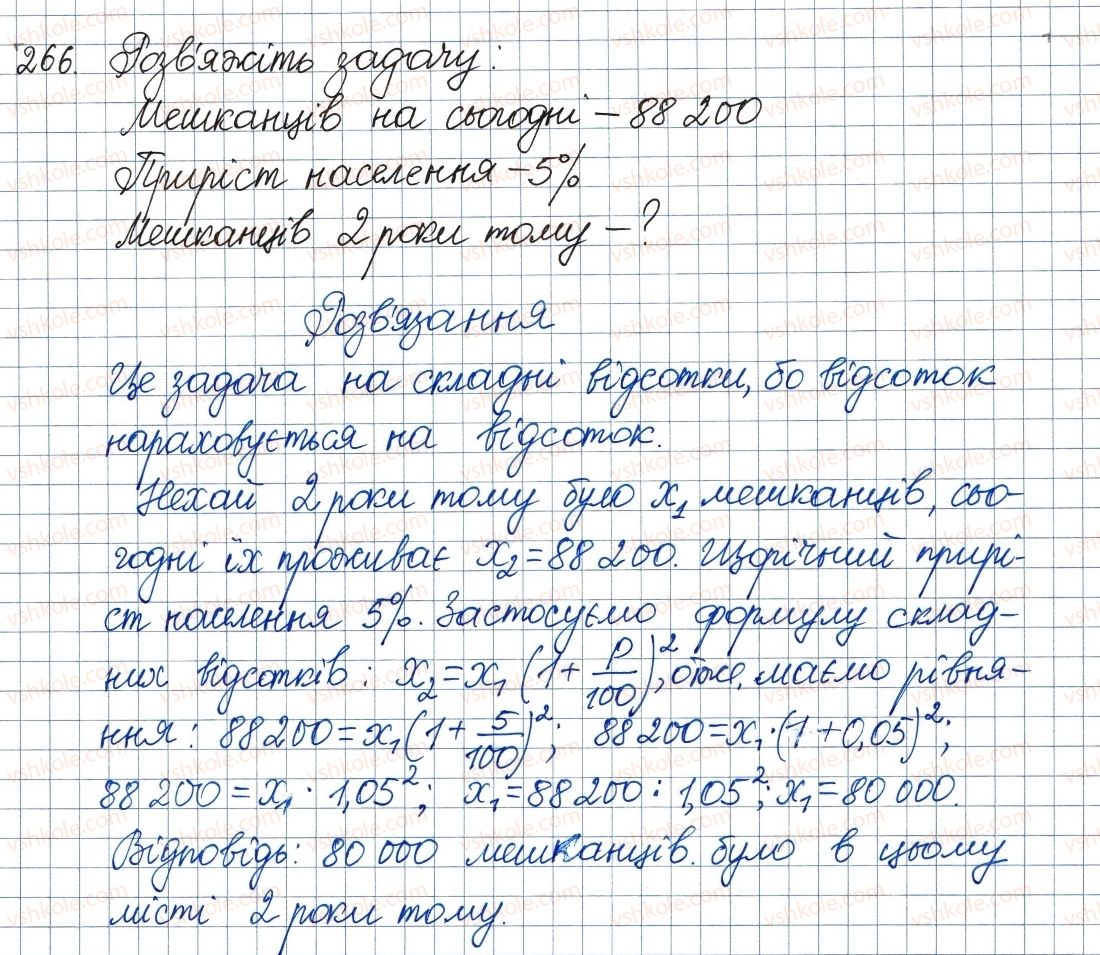 266. Розв'яжіть задачу:
Мешканців на сьогодні – 88 200
Приріст населення – 5%
Мешканців 2 роки тому – ?
Розв'язання
Це задача на складні відсотки, бо відсоток
нараховується на відсоток.
Нехай 2 роки тому було x₁ мешканців, сьо-
годні їх проживає x₂ = 88 200. Щорічний прирі-
ст населення 5%. Застосуємо формулу склад-
них відсотків: x₂ = x₁ (1 + p/100)², отже, маємо рівня-
ння: 88 200 = x₁ (1 + 5/100)²; 88 200 = x₁ · (1 + 0,05)²;
88 200 = x₁ · 1,05²; x₁ = 88 200 : 1,05²; x₁ = 80 000.
Відповідь: 80 000 мешканців було в цьому
місті 2 роки тому.